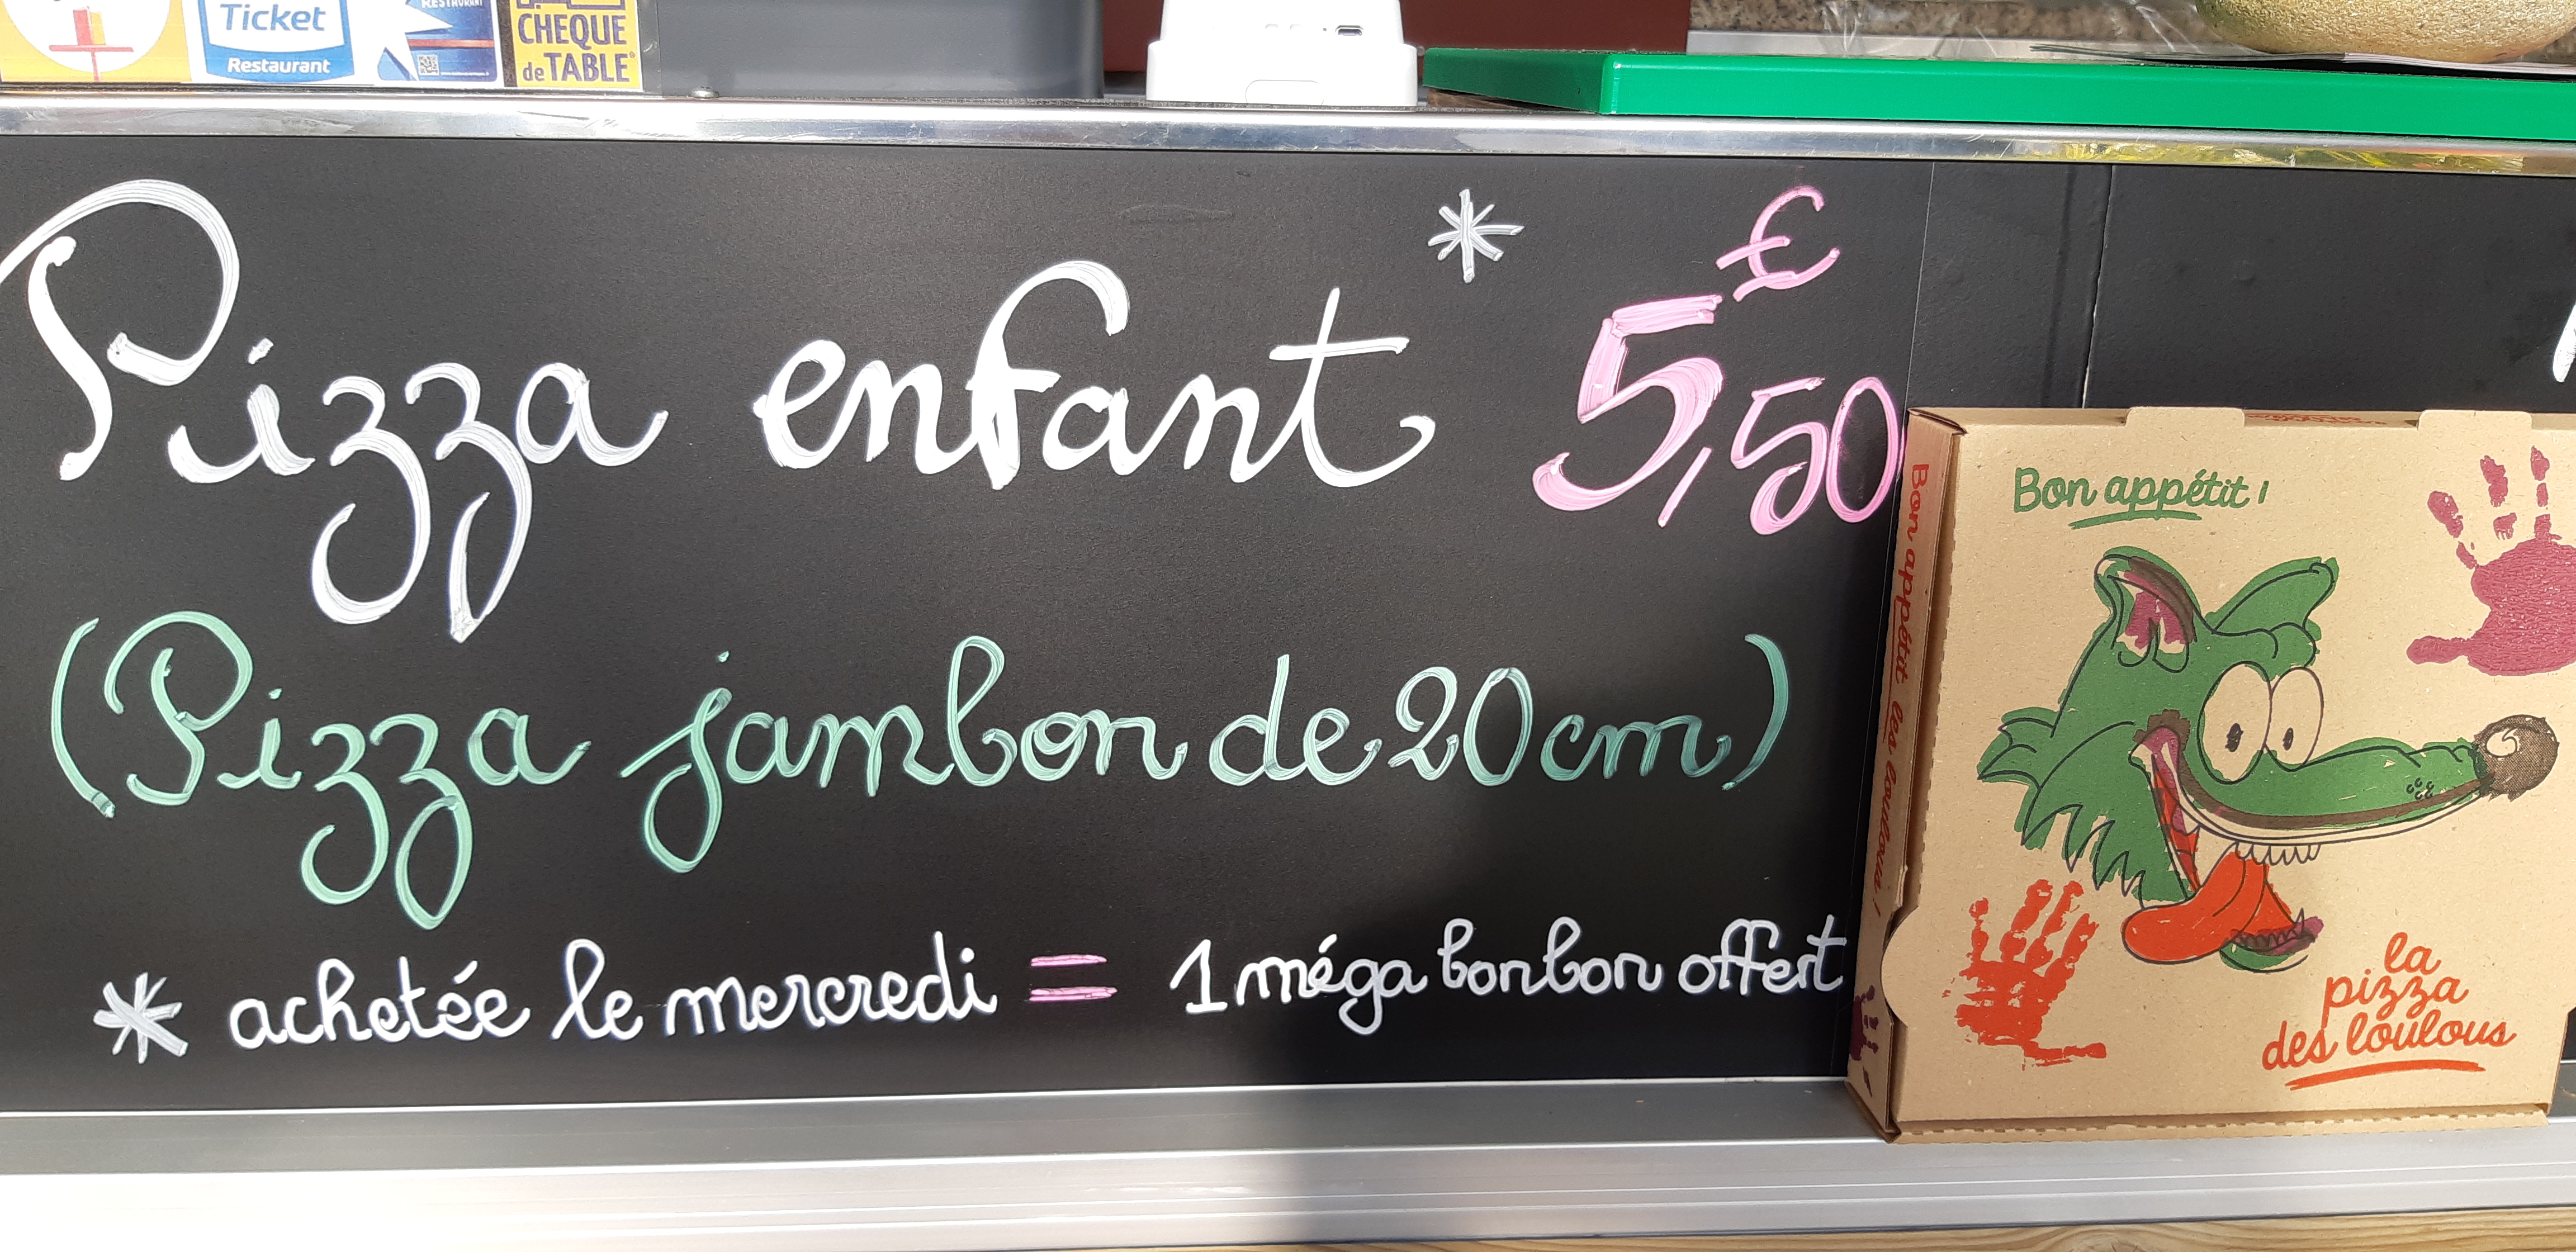 Ticket
Restaurant
RESTAURANT
CHEQUE
de TABLE
Pizza enfant * 5,50 €
(Pizza jambon de 20cm)
* achetée le mercredi = 1 méga bonbon offert
Bon appétit les loulous !
Bon appétit !
la
pizza
des loulous